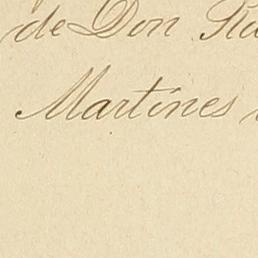 de Don
Martines